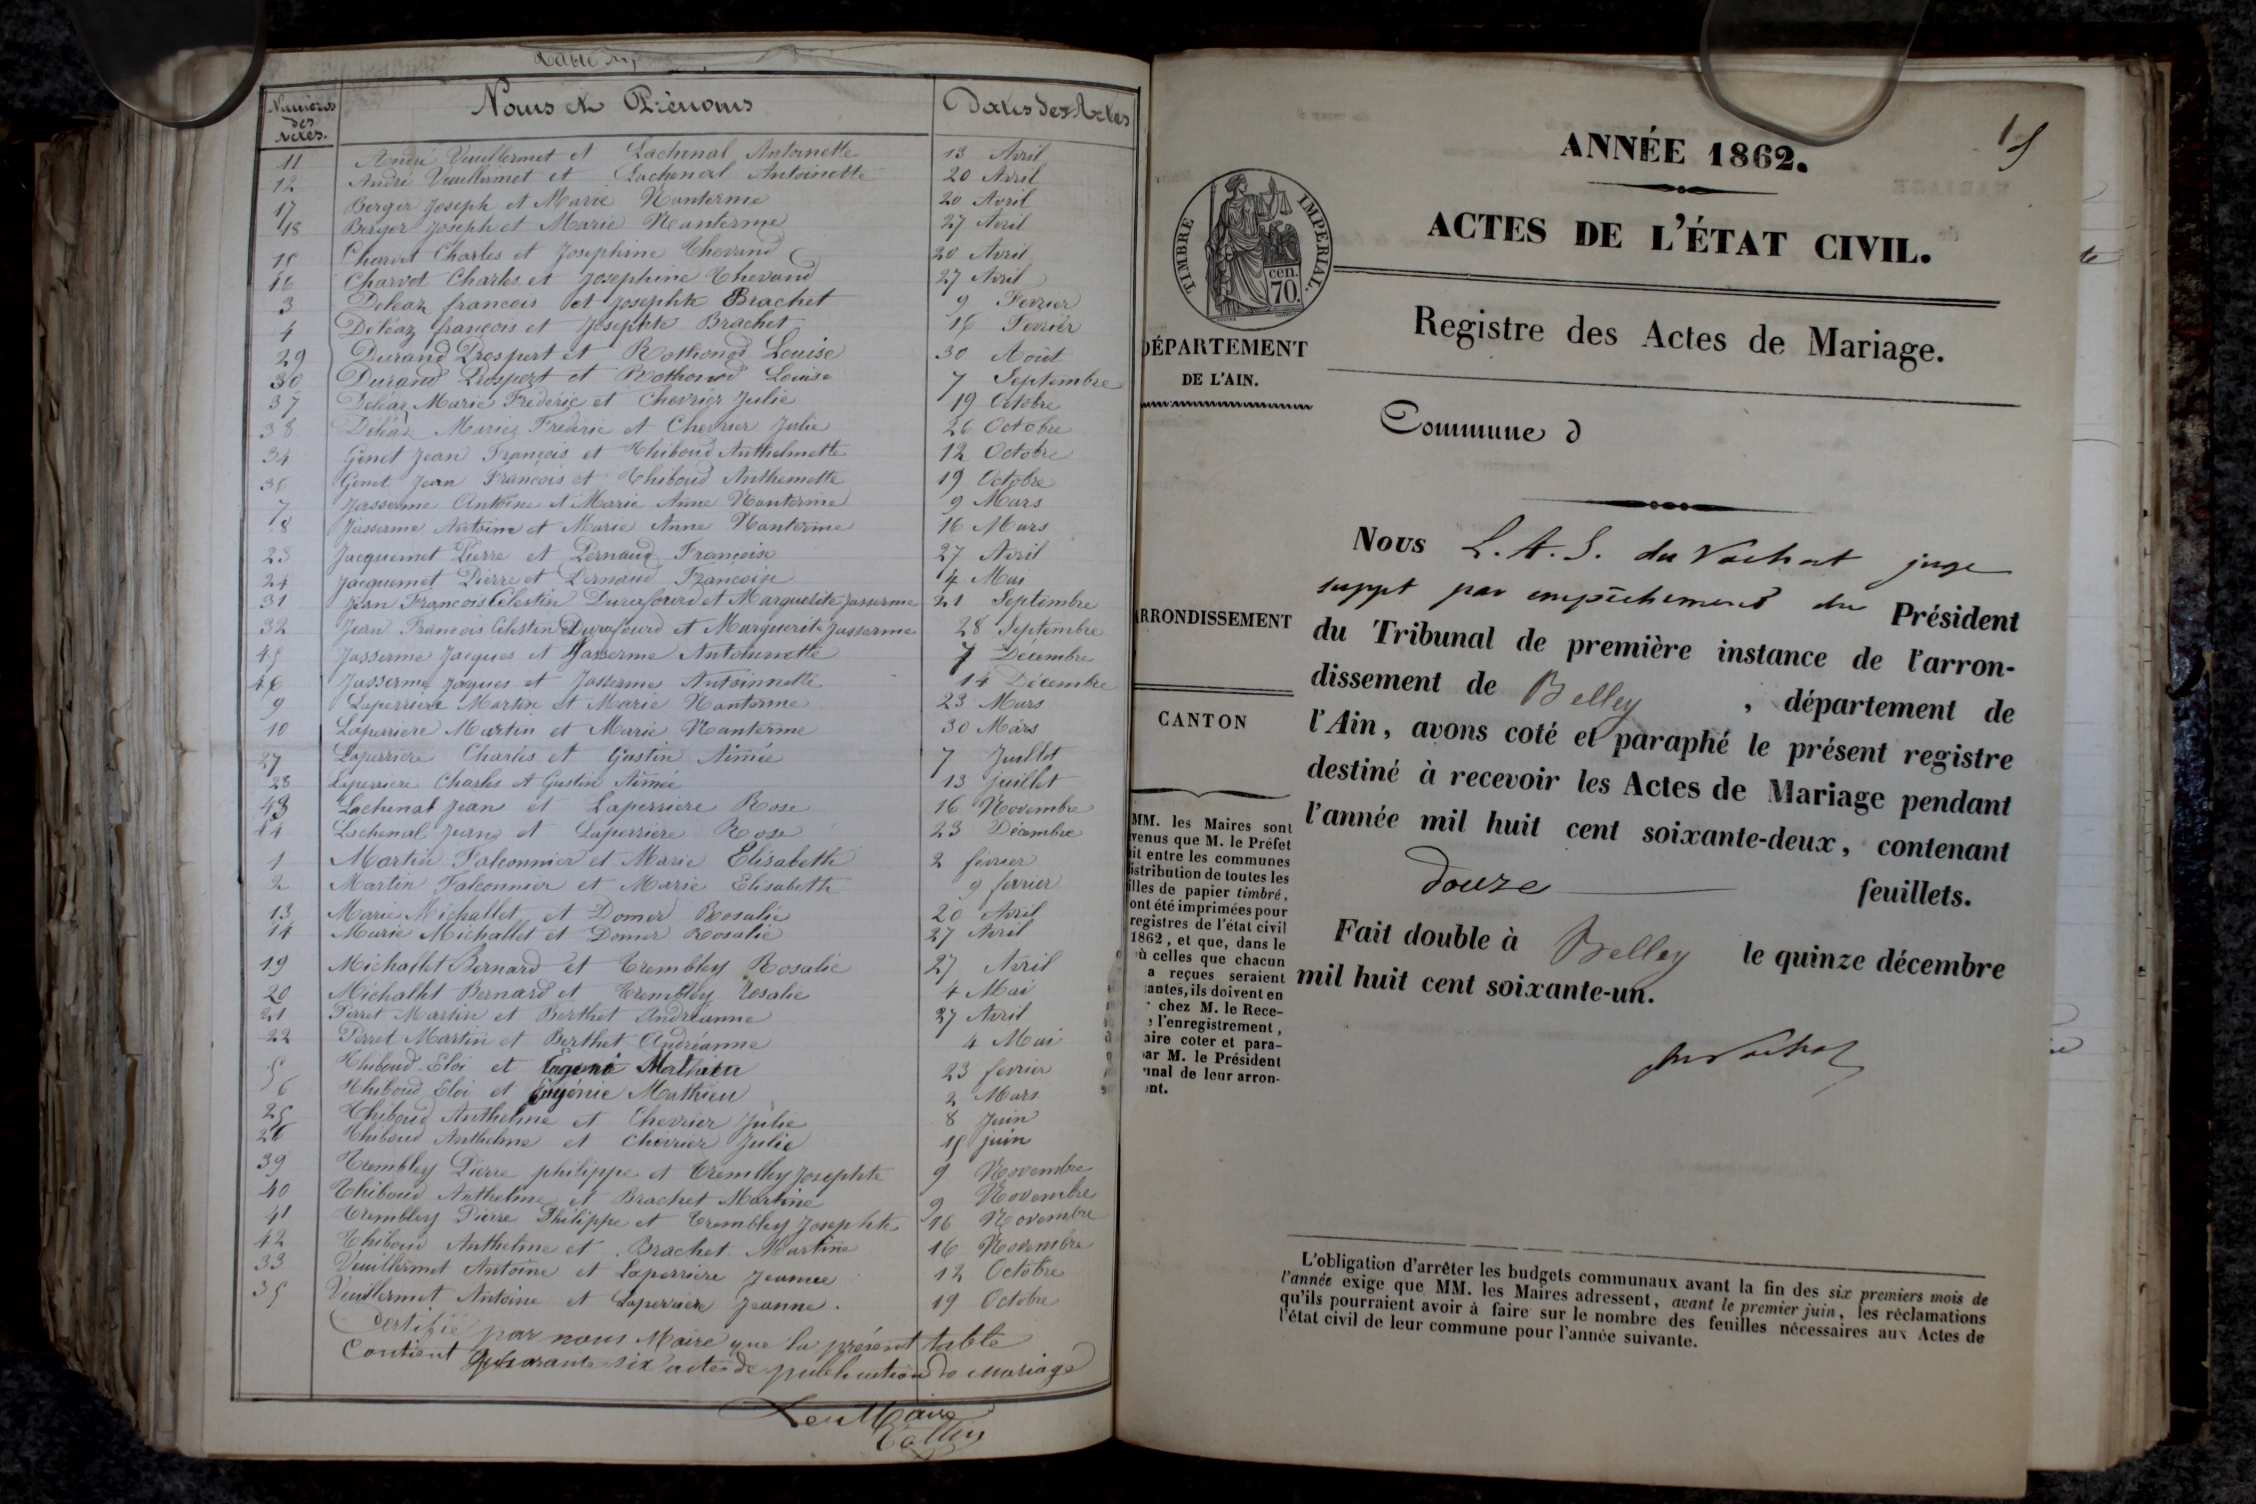 Numéros des Actes. Noms et Prénoms Dates des Actes
11 André Vuillermet et Lachenal Antoinette 13 Avril
12 André Vuillermet et Lachenal Antoinette 20 Avril
17 Berger Joseph et Marie Nanterme 20 Avril
18 Berger Joseph et Marie Nanterme 27 Avril
15 Charvet Charles et Josephine Thevand 20 Avril
16 Charvot Charles et Josephine Thevand 27 Avril
3 Deléaz francois et Josephte Brachet 9 Fevrier
4 Deléaz françois et Josephte Brachet 16 Fevrier
29 Durand Prospert et Rothonod Louise 30 Août
30 Durand Prospert et Rothonod Louise 7 Septembre
37 Deléaz Marie Fréderic et Chevrier Julie 19 Octobre
38 Deléaz Marie Fréderic et Chevrier Julie 26 Octobre
34 Genet Jean François et Thiboud Anthelmette 12 Octobre
36 Genet Jean François et Thiboud Anthemette 19 Octobre
7 Jasserme Antoine et Marie Anne Nanterme 9 Mars
8 Jasserme Antoine et Marie Anne Nanterme 16 Mars
23 Jacquemet Pierre et Pernaud Françoise 27 Avril
24 Jacquemet Pierre et Pernaud Françoise 4 Mai
31 Jean François Célestin Durafourd et Marguerite Jasserme 21 Septembre
32 Jean François Célestin Durafourd et Marguerite Jasserme 28 Septembre
45 Jasserme Jacques et Jasserme Antoinnette 7 Décembre
46 Jasserme Jaques et Jasserme Antoinnette 14 Décembre
9 Laperriere Martin et Marie Nanterme 23 Mars
10 Laperriere Martin et Marie Nanterme 30 Mars
27 Laperriere Charles et Gustin Aimée 7 Juillet
28 Leperriere Charles et Gustin Aimée 13 Juillet
43 Lachenal Jean et Laperriere Rose 16 Novembre
44 Lachenal Jean et Laperriere Rose 23 Décembre
1 Martin Falconnier et Marie Elisabeth 2 fevrier
2 Martin Falconnier et Marie Elisabeth 9 fevrier
13 Marie Michallet et Domer Rosalie 20 Avril
14 Marie Michallet et Domer Rosalie 27 Avril
19 Michallet Bernard et Trembley Rosalie 27 Avril
20 Michallet Bernard et Trembley Rosalie 4 Mai
21 Perret Martin et Berthet Andréanne 27 Avril
22 Perret Martin et Berthet Andréanne 4 Mai
5 Thiboud Eloi et Eugenie Mathieu 23 fevrier
6 Thiboud Eloi et Eugénie Mathieu 2 Mars
25 Thiboud Anthelme et Chevrier Julie 8 Juin
26 Thiboud Anthelme et Chevrier Julie 15 juin
39 Trembley Pierre philippe et Trembley Josephte 9 Novembre
40 Thiboud Anthelme et Brachet Martine 9 Novembre
41 Trembley Pierre Philippe et Trembley Josephte 16 Novembre
42 Thiboud Anthelme et Brachet Martine 16 Novembre
33 Vuillermet Antoine et Laperriere Jeanne 12 Octobre
35 Vuillermet Antoine et Laperriere Jeanne. 19 Octobre
Certifié par nous Maire que la présent table
Contient quarante six actes de publication de mariage
Le Maire
ANNÉE 1862.
ACTES DE L'ÉTAT CIVIL.
TIMBRE IMPÉRIAL.
cen.
70.
Registre des Actes de Mariage.
DÉPARTEMENT
DE L'AIN.
Commune d
Nous L. A. S. du Vachat juge
suppt par empêchement du Président
ARRONDISSEMENT
du Tribunal de première instance de l'arron-
dissement de Belley, département de
CANTON
l'Ain, avons coté et paraphé le présent registre
destiné à recevoir les Actes de Mariage pendant
l'année mil huit cent soixante-deux, contenant
douze feuillets.
Fait double à Belley le quinze décembre
mil huit cent soixante-un.
duVachat
MM. les Maires sont
venus que M. le Préfet
it entre les communes
istribution de toutes les
illes de papier timbré,
ont été imprimées pour
registres de l'état civil
1862, et que, dans le
où celles que chacun
a reçues seraient
antes, ils doivent en
chez M. le Rece-
l'enregistrement,
aire coter et para-
ar M. le Président
unal de leur arron-
ent.
L'obligation d'arrêter les budgets communaux avant la fin des six premiers mois de
l'année exige que MM. les Maires adressent, avant le premier juin, les réclamations
qu'ils pourraient avoir à faire sur le nombre des feuilles nécessaires aux Actes de
l'état civil de leur commune pour l'année suivante.